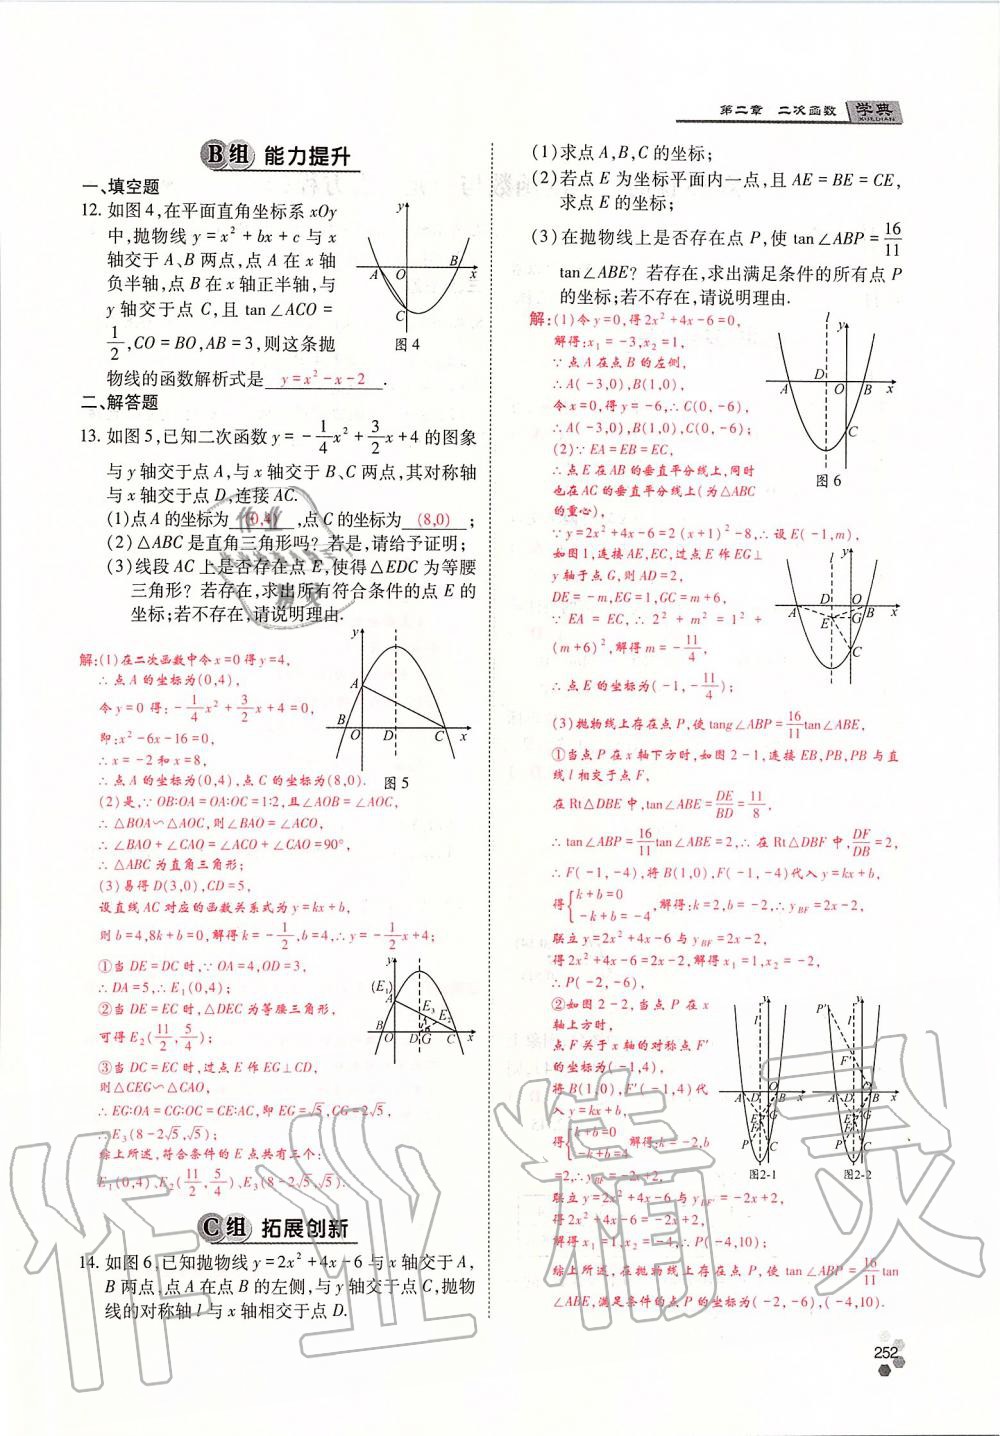 第二章 二次函数 学典
XUEDIAN
B组 能力提升
一、填空题
12. 如图4,在平面直角坐标系xOy
中,抛物线y=x²+bx+c与x
轴交于A、B两点,点A在x轴
负半轴,点B在x轴正半轴,与
y轴交于点C,且tan∠ACO=
1/2,CO=BO,AB=3,则这条抛
物线的函数解析式是 y=x²-x-2 .
图4
二、解答题
13. 如图5,已知二次函数y=-1/4x²+3/2x+4的图象
与y轴交于点A,与x轴交于B、C两点,其对称轴
与x轴交于点D,连接AC.
(1)点A的坐标为 (0,4) ,点C的坐标为 (8,0) ;
(2)△ABC是直角三角形吗?若是,请给予证明;
(3)线段AC上是否存在点E,使得△EDC为等腰
三角形?若存在,求出所有符合条件的点E的
坐标;若不存在,请说明理由.
解:(1)在二次函数中令x=0得y=4,
∴点A的坐标为(0,4),
令y=0得:-1/4x²+3/2x+4=0,
即:x²-6x-16=0,
∴x=-2和x=8,
∴点A的坐标为(0,4),点C的坐标为(8,0).
图5
(2)是,∵OB∶OA=OA∶OC=1∶2,且∠AOB=∠AOC,
∴△BOA∽△AOC,则∠BAO=∠ACO,
∴∠BAO+∠CAO=∠ACO+∠CAO=90°,
∴△ABC为直角三角形;
(3)易得D(3,0),CD=5,
设直线AC对应的函数关系式为y=kx+b,
则b=4,8k+b=0,解得k=-1/2,b=4,∴y=-1/2x+4;
①当DE=DC时,∵OA=4,OD=3,
∴DA=5,∴E₁(0,4);
②当DE=EC时,△DEC为等腰三角形,
可得E₂(11/2,5/4);
③当DC=EC时,过点E作EG⊥CD,
则△CEG∽△CAO,
∴EG∶OA=CG∶OC=CE∶AC,即EG=√5,CG=2√5,
∴E₃(8-2√5,√5);
综上所述,符合条件的E点共有三个:
E₁(0,4),E₂(11/2,5/4),E₃(8-2√5,√5).
C组 拓展创新
14. 如图6,已知抛物线y=2x²+4x-6与x轴交于A,
B两点,点A在点B的左侧,与y轴交于点C,抛物
线的对称轴l与x轴相交于点D.
(1)求点A,B,C的坐标;
(2)若点E为坐标平面内一点,且AE=BE=CE,
求点E的坐标;
(3)在抛物线上是否存在点P,使tan∠ABP=16/11
tan∠ABE?若存在,求出满足条件的所有点P
的坐标;若不存在,请说明理由.
解:(1)令y=0,得2x²+4x-6=0,
解得:x₁=-3,x₂=1,
∵点A在点B的左侧,
∴A(-3,0),B(1,0),
令x=0,得y=-6,∴C(0,-6),
∴A(-3,0),B(1,0),C(0,-6),
(2)∵EA=EB=EC,
∴点E在AB的垂直平分线上,同时
也在AC的垂直平分线上(为△ABC
的重心),
图6
∵y=2x²+4x-6=2(x+1)²-8,∴设E(-1,m),
如图1,连接AE,EC,过点E作EG⊥
y轴于点G,则AD=2,
DE=-m,EG=1,GC=m+6,
∵EA=EC,∴2²+m²=1²+
(m+6)²,解得m=-11/4,
∴点E的坐标为(-1,-11/4);
(3)抛物线上存在点P,使tang∠ABP=16/11tan∠ABE,
①当点P在x轴下方时,如图2-1,连接EB,PB,PB与直
线l相交于点F,
在Rt△DBE中,tan∠ABE=DE/BD=11/8,
∴tan∠ABP=16/11tan∠ABE=2,∴在Rt△DBF中,DF/DB=2,
∴F(-1,-4),将B(1,0),F(-1,-4)代入y=kx+b,
得{k+b=0 -k+b=-4,解得:k=2,b=-2,∴y_BF=2x-2,
联立y=2x²+4x-6与y_BF=2x-2,
得2x²+4x-6=2x-2,解得x₁=1,x₂=-2,
∴P(-2,-6).
②如图2-2,当点P在x
轴上方时,
点F关于x轴的对称点F′
为(-1,4),
将B(1,0),F′(-1,4)代
入y=kx+b,
得{k+b=0 -k+b=4,解得:k=-2,b
=2,∴y_BF′=-2x+2,
图2-1 图2-2
联立y=2x²+4x-6与y_BF′=-2x+2,
得2x²+4x-6=-2x+2,
解得x₁=1,x₂=-4,∴P(-4,10);
综上所述,在抛物线上存在点P,使tan∠ABP=16/11tan
∠ABE,满足条件的点P的坐标为(-2,-6),(-4,10).
252
作业精灵